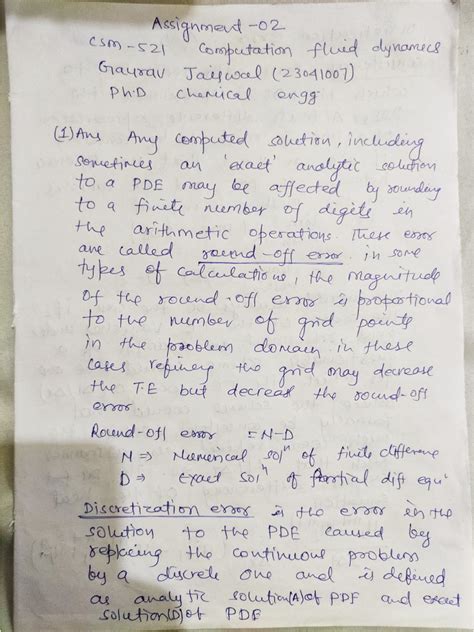 Assignment -02
CSM-521 Computation fluid dynamics
Gaurav Jaiswal (23041007)
Ph.D Chemical engg.
(1) Ans Any computed solution, including
sometimes an 'exact' analytic solution
to a PDE may be affected by rounding
to a finite number of digits in
the arithmetic operations. These error
are called round-off error. in some
types of calculations, the magnitude
of the round-off error is proportional
to the number of grid points
in the problem domain in these
cases refining the grid may decrease
the T.E but decrease the round-off
error
Round-off error = N-D
N ⇒ Numerical solⁿ of finite difference
D ⇒ Exact solⁿ of Partial diff equⁱ
Discretization error is the error in the
solution to the PDE caused by
replacing the continuous problem
by a discrete one and is defined
as analytic solution(A) of PDF and exact
solution(D) of PDF